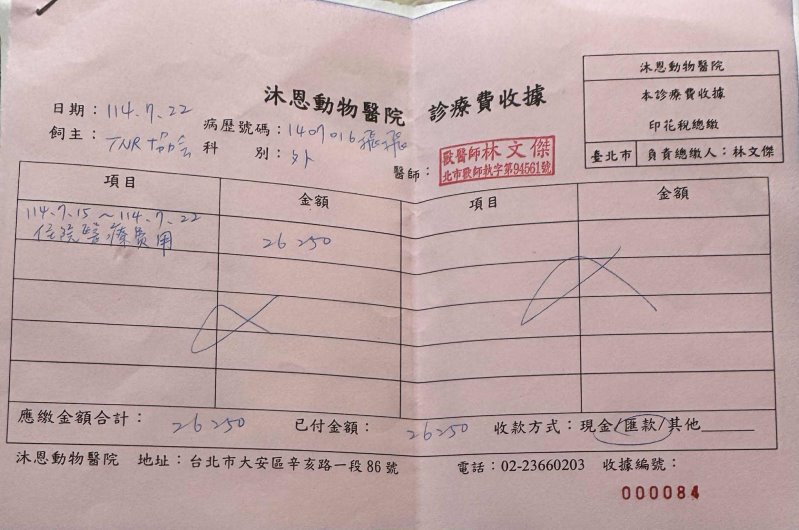 沐恩動物醫院 診療費收據
沐恩動物醫院
本診療費收據
印花稅總繳
臺北市 負責總繳人：林文傑
日期：114.7.22
病歷號碼：1407016 飛飛
飼主：TNR協會
科別：外
醫師：
獸醫師林文傑
北市獸師執字第94561號
項目 金額 項目 金額
114.7.15～114.7.22
住院醫療費用 26250
應繳金額合計：26250 已付金額：26250 收款方式：現金/匯款/其他
沐恩動物醫院 地址：台北市大安區辛亥路一段86號 電話：02-23660203 收據編號：
000084